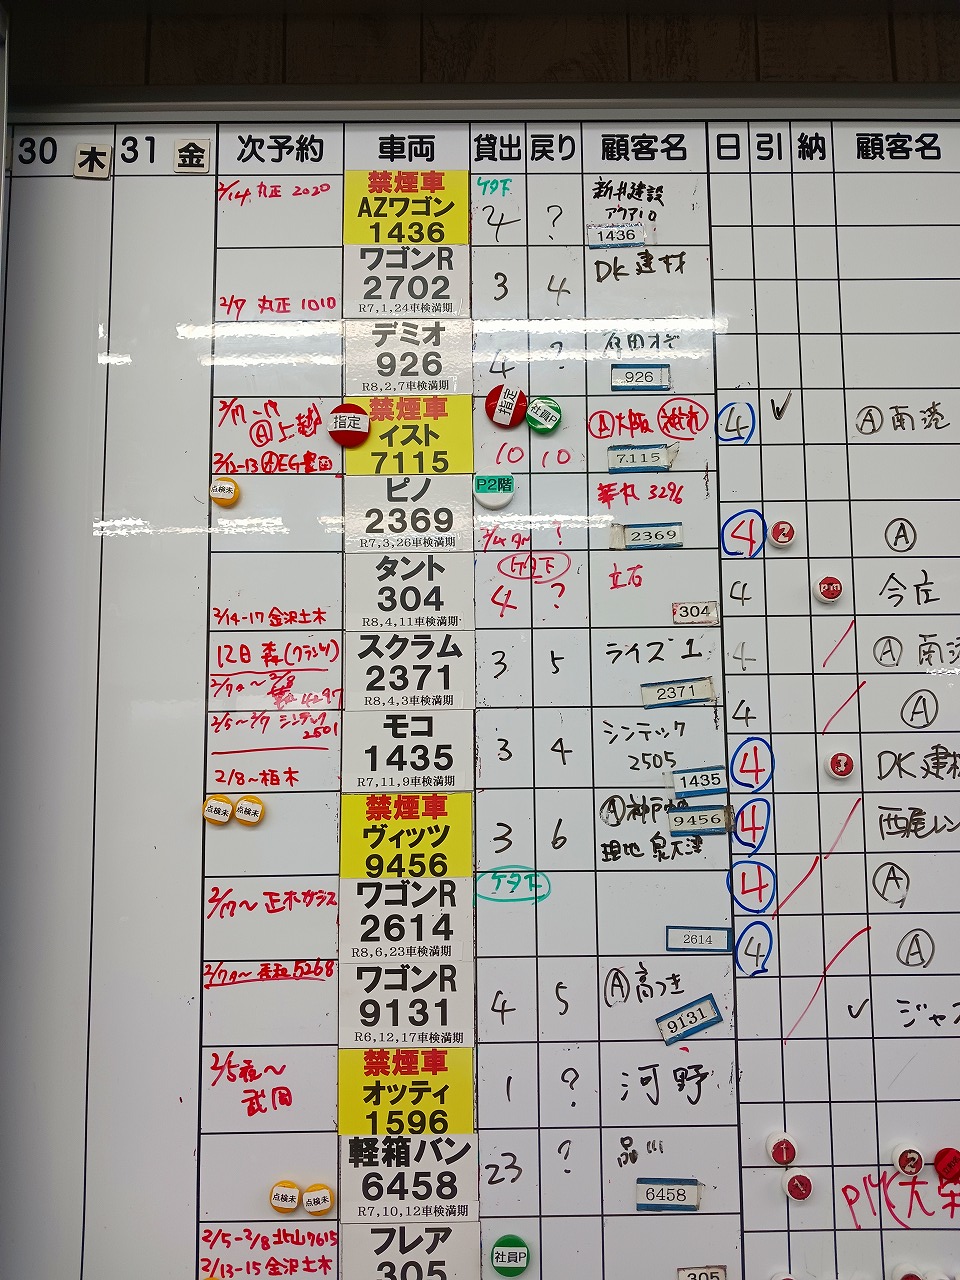 30 木 31 金 次予約 車両 貸出 戻り 顧客名 日 引 納 顧客名
2/14 丸正 2020
禁煙車
AZワゴン
1436
ケタ下
4 ?
新井建設
アクア10
1436
2/7 丸正 1010
ワゴンR
2702
R7,1,24車検満期
3 4
DK建材
デミオ
926
R8,2,7車検満期
4 ?
926
指定
禁煙車
イスト
7115
指定
社員P
10 10
Ⓐ大阪
7115
4
Ⓐ南港
点検未
ピノ
2369
R7,3,26車検満期
P2階
!
3296
2369
4
2
Ⓐ
2/14-17 金沢土木
タント
304
R8,4,11車検満期
ケタ下
4 ?
立石
304
4
pm
今庄
12日 森(クラシツ)
スクラム
2371
R8,4,3車検満期
3 5
ライズ 1
2371
4
Ⓐ南港
2/5~2/7 シンテック
2501
2/8~柏木
モコ
1435
R7,11,9車検満期
3 4
シンテック
2505
1435
4
Ⓐ
4
3
DK建材
点検未
点検未
禁煙車
ヴィッツ
9456
3 6
Ⓐ神戸
9456
現地 泉大津
4
西尾レン
2/17~ 正木ガラス
ワゴンR
2614
R8,6,23車検満期
ケタ下
2614
4
Ⓐ
4
Ⓐ
5268
ワゴンR
9131
R6,12,17車検満期
4 5
Ⓐ高つき
9131
ジャス
2/5夜~
武岡
禁煙車
オッティ
1596
1 ?
河野
点検未
点検未
軽箱バン
6458
R7,10,12車検満期
23 ?
品川
6458
1
2
1
2/5-2/8 北山7615
2/13-15 金沢土木
フレア
305
社員P
305